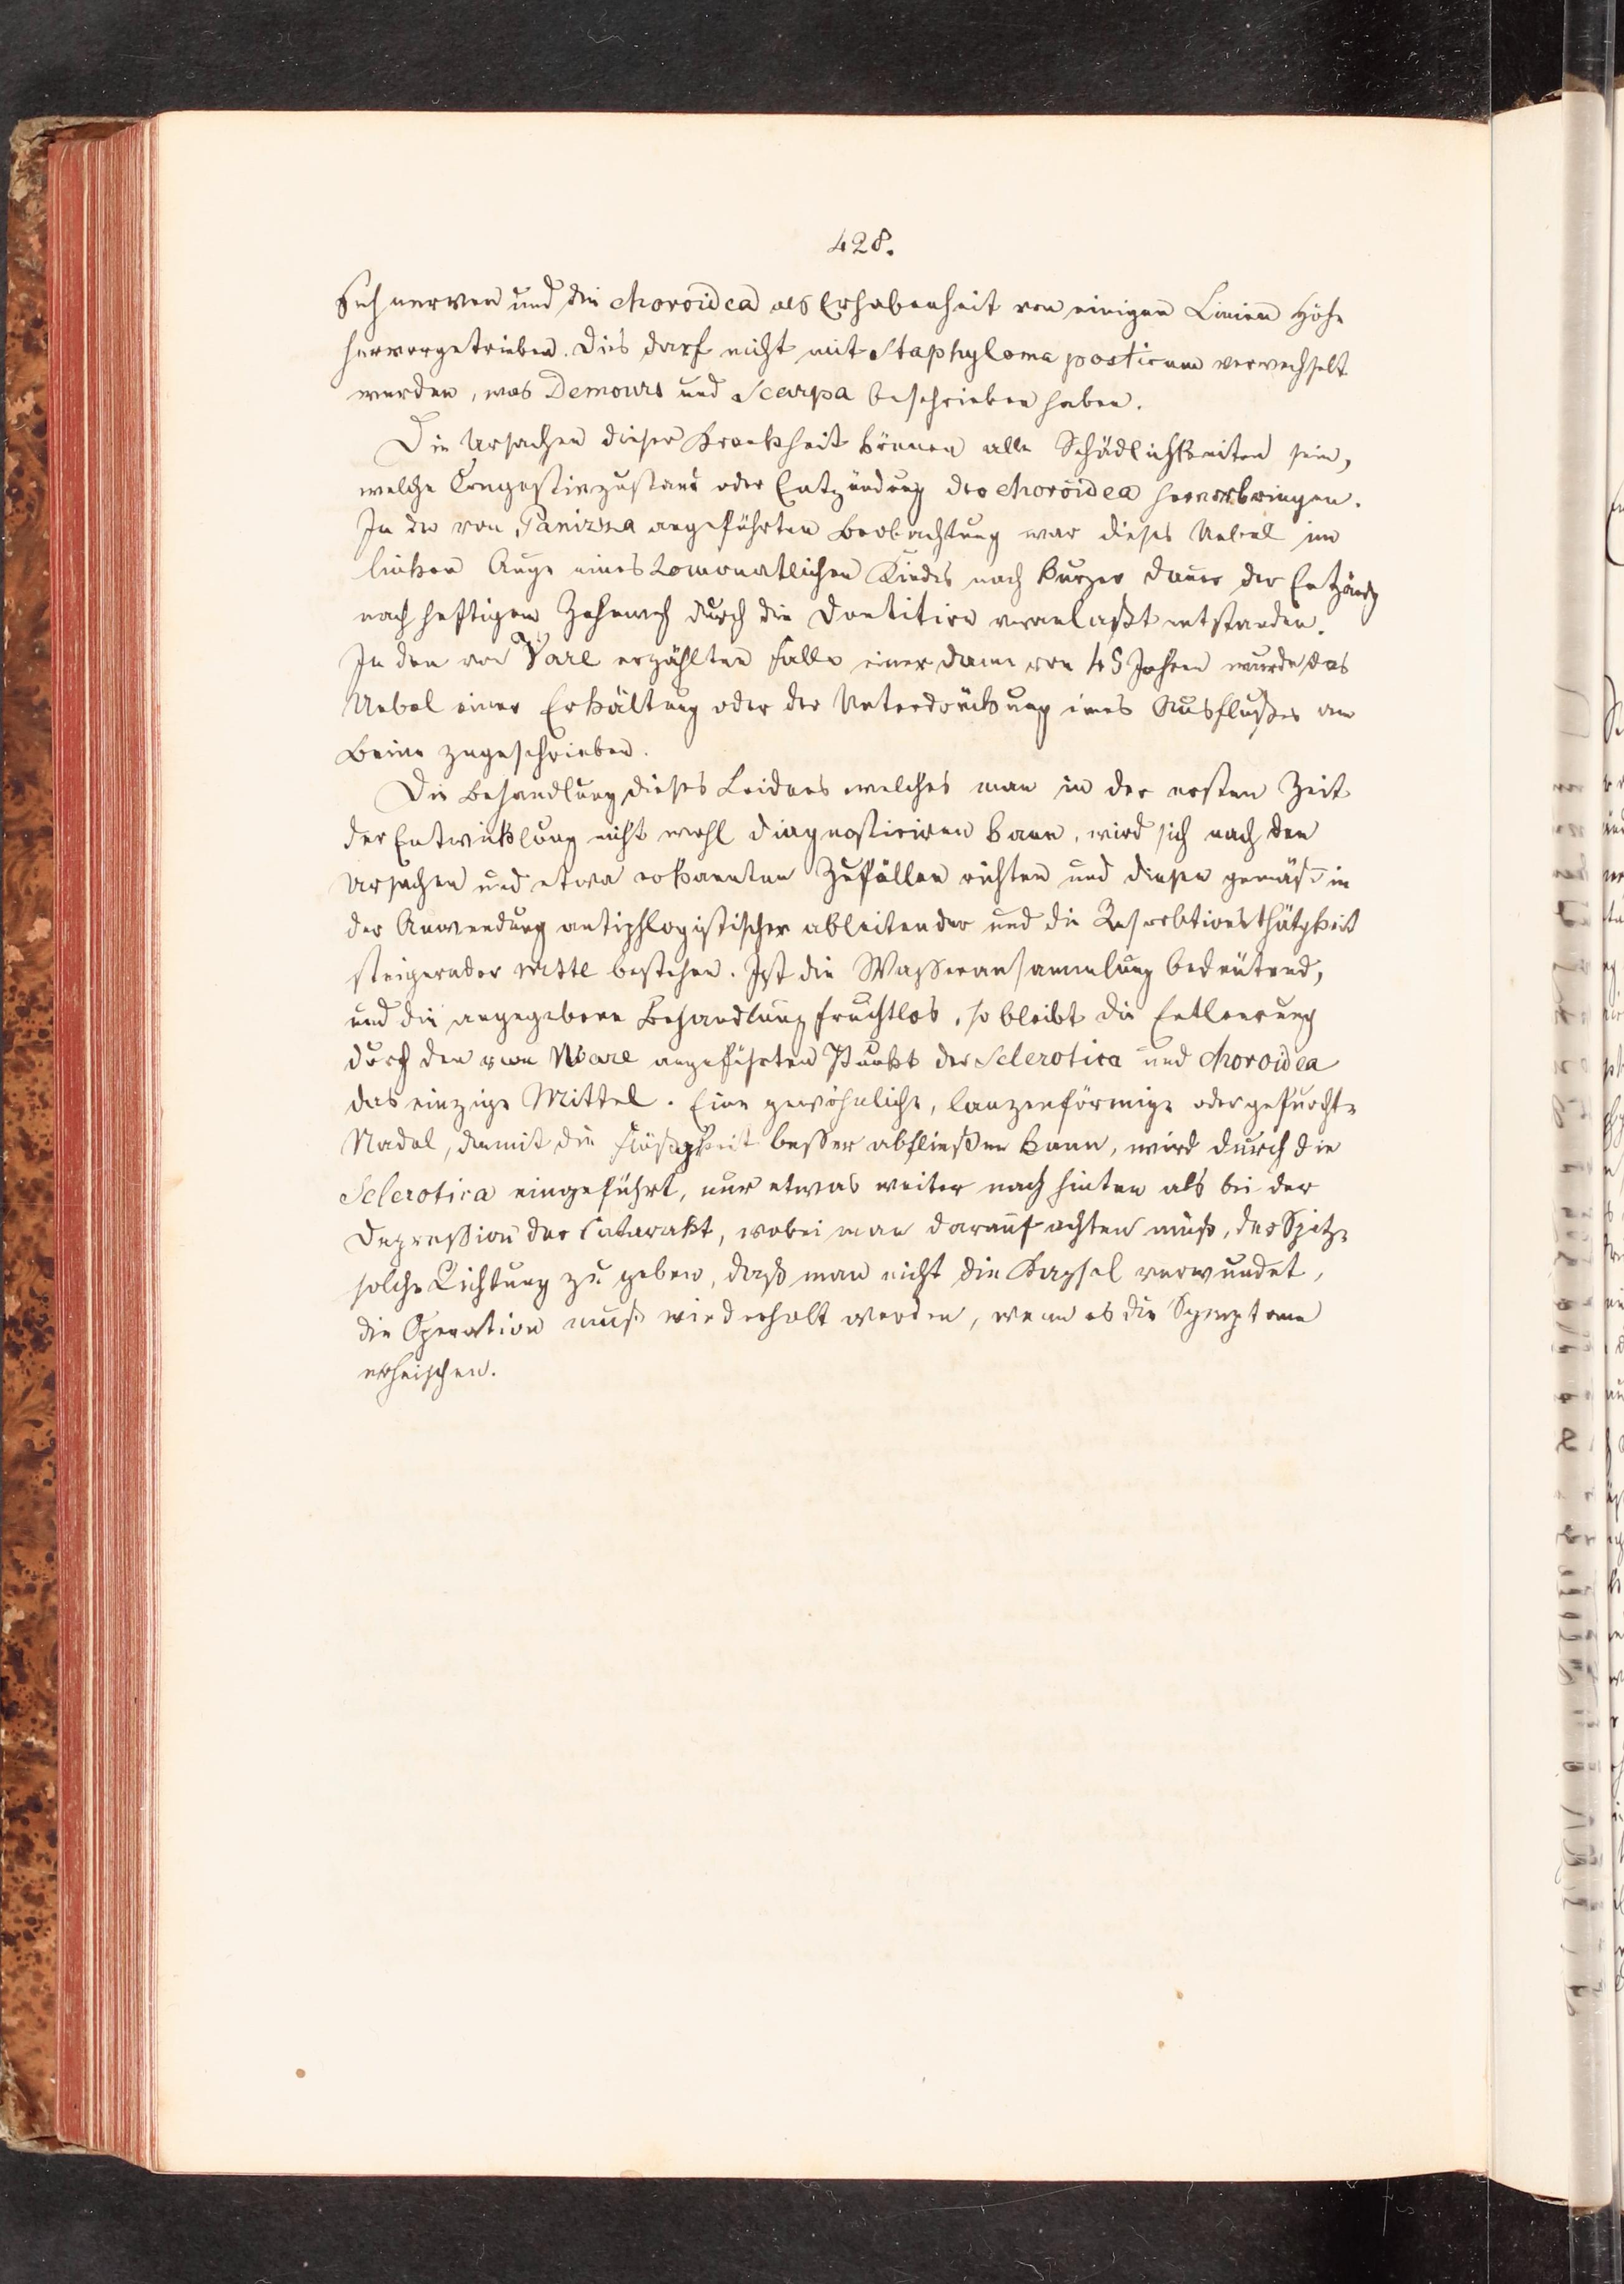 428.
Sehnerven und die Choroidea als Erhabenheit von einigen Linien Höhe
hervorgetrieben. Dies darf nicht mit Staphyloma posticum verwechselt
werden, was Demours und Scarpa beschrieben haben.
Die Ursachen dieser Krankheit können alle Schädlichkeiten sein,
welche Congestivzustand oder Entzündung der Choroidea hervorbringen.
In der von Panizza angeführten Beobachtung war dieses Uebel im
linken Auge eines 20monatlichen Kindes nach kurzer Dauer der Entzündg
nach heftigem Zahnweh durch die Dentition veranlaßt entstanden.
In den von Ware erzählten Falle einer Dame von 45 Jahren wurde das
Uebel einer Erkältung oder der Unterdrückung eines Ausflußes am
Beine zugeschrieben.
Die Behandlung dieses Leidens welches man in der ersten Zeit
der Entwicklung nicht wohl diagnosticiren kann, wird sich nach den
Ursachen und etwa erkannten Zufällen richten und diesen gemäß in
der Anwendung antiphlogistischer ableitender und die Resorbtionsthätgkeit
steigernder Mittl bestehen. Ist die Wasseransammlung bedeutend,
und die angegebene Behandlung fruchtlos, so bleibt die Entleerung
durch den von Ware angeführten Punkt der Sclerotica und Choroidea
das einzige Mittel. Eine gewöhnliche, lanzenförmige oder gefurchte
Nadel, damit die Flüßgkeit besser abfließen kann, wird durch die
Sclerotica eingeführt, nur etwas weiter nach hinten als bei der
Depression der Catarakt, wobei man darauf achten muß, der Spitze
solche Richtung zu geben, daß man nicht die Kapsel verwundet,
die Operation muß wiederholt werden, wenn es die Symptome
erheischen.